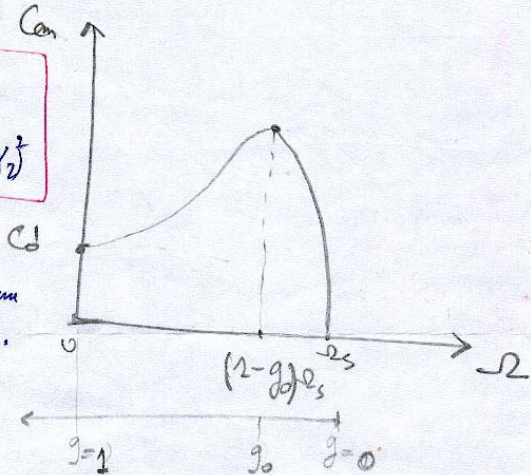 Cem
2)²
Cd
um
0
(1-g₀)Ωs
Ωs
Ω
g=1
g₀
g=0